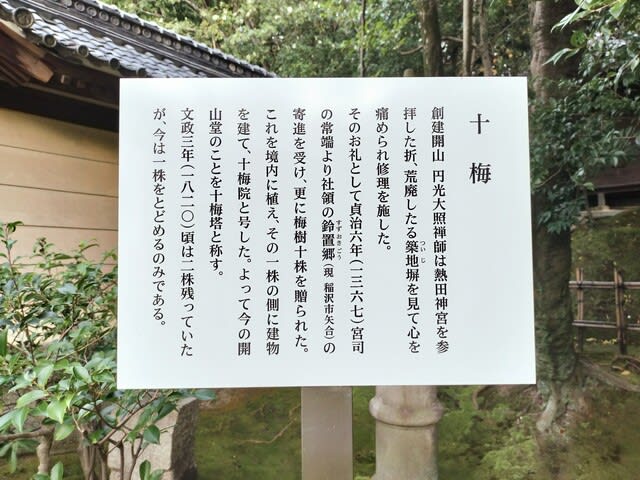 十梅
創建開山 円光大照禅師は熱田神宮を参
拝した折、荒廃したる築地塀を見て心を
ついじ
痛められ修理を施した。
そのお礼として貞治六年(一三六七)宮司
の常端より社領の鈴置郷(現 稲沢市矢合)の
すずおきごう
寄進を受け、更に梅樹十株を贈られた。
これを境内に植え、その一株の側に建物
を建て、十梅院と号した。よって今の開
山堂のことを十梅塔と称す。
文政三年(一八二〇)頃は二株残っていた
が、今は一株をとどめるのみである。